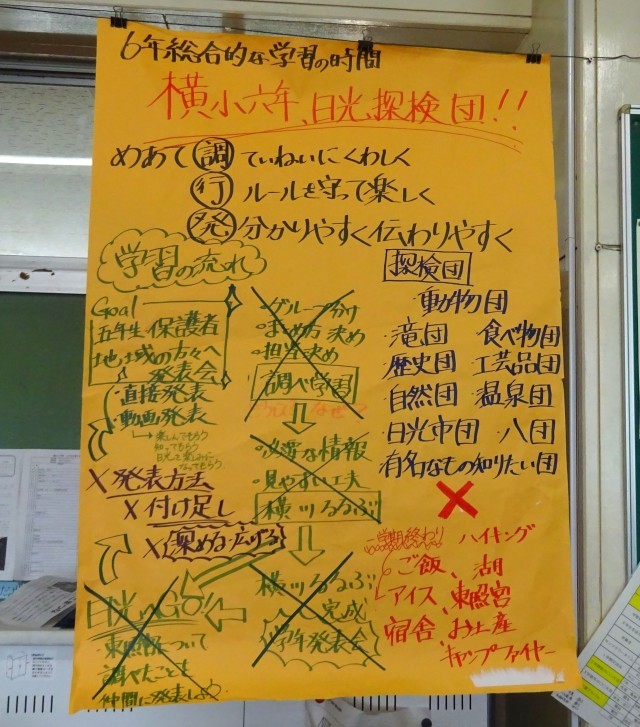 6年総合的な学習の時間
横小六年、日光探検団!!
めあて 調 ていねいにくわしく
行 ルールを守って楽しく
発 分かりやすく伝わりやすく
学習の流れ
Goal
五年生 保護者
地域の方々へ
発表会
・直接発表
・動画発表
楽しんでもらう
知ってもらう
X 発表方法
X 付け足し
X 深める・広げる
日光へGO!
・東照宮について
調べたことを
仲間に発表しよう
・グループ分け
・まとめ方 決め
・担当決め
調べ学習
・必要な情報
・見やすい工夫
横ツるるぶ
横ツるるぶ
完成
学年発表会
探検団
・動物団
・滝団 ・食べ物団
・歴史団 ・工芸品団
・自然団 ・温泉団
・日光市団 ・人団
・有名なもの知りたい団
X
一学期終わり ハイキング
ご飯、湖
アイス、東照宮
宿舎、お土産
キャンプファイヤー